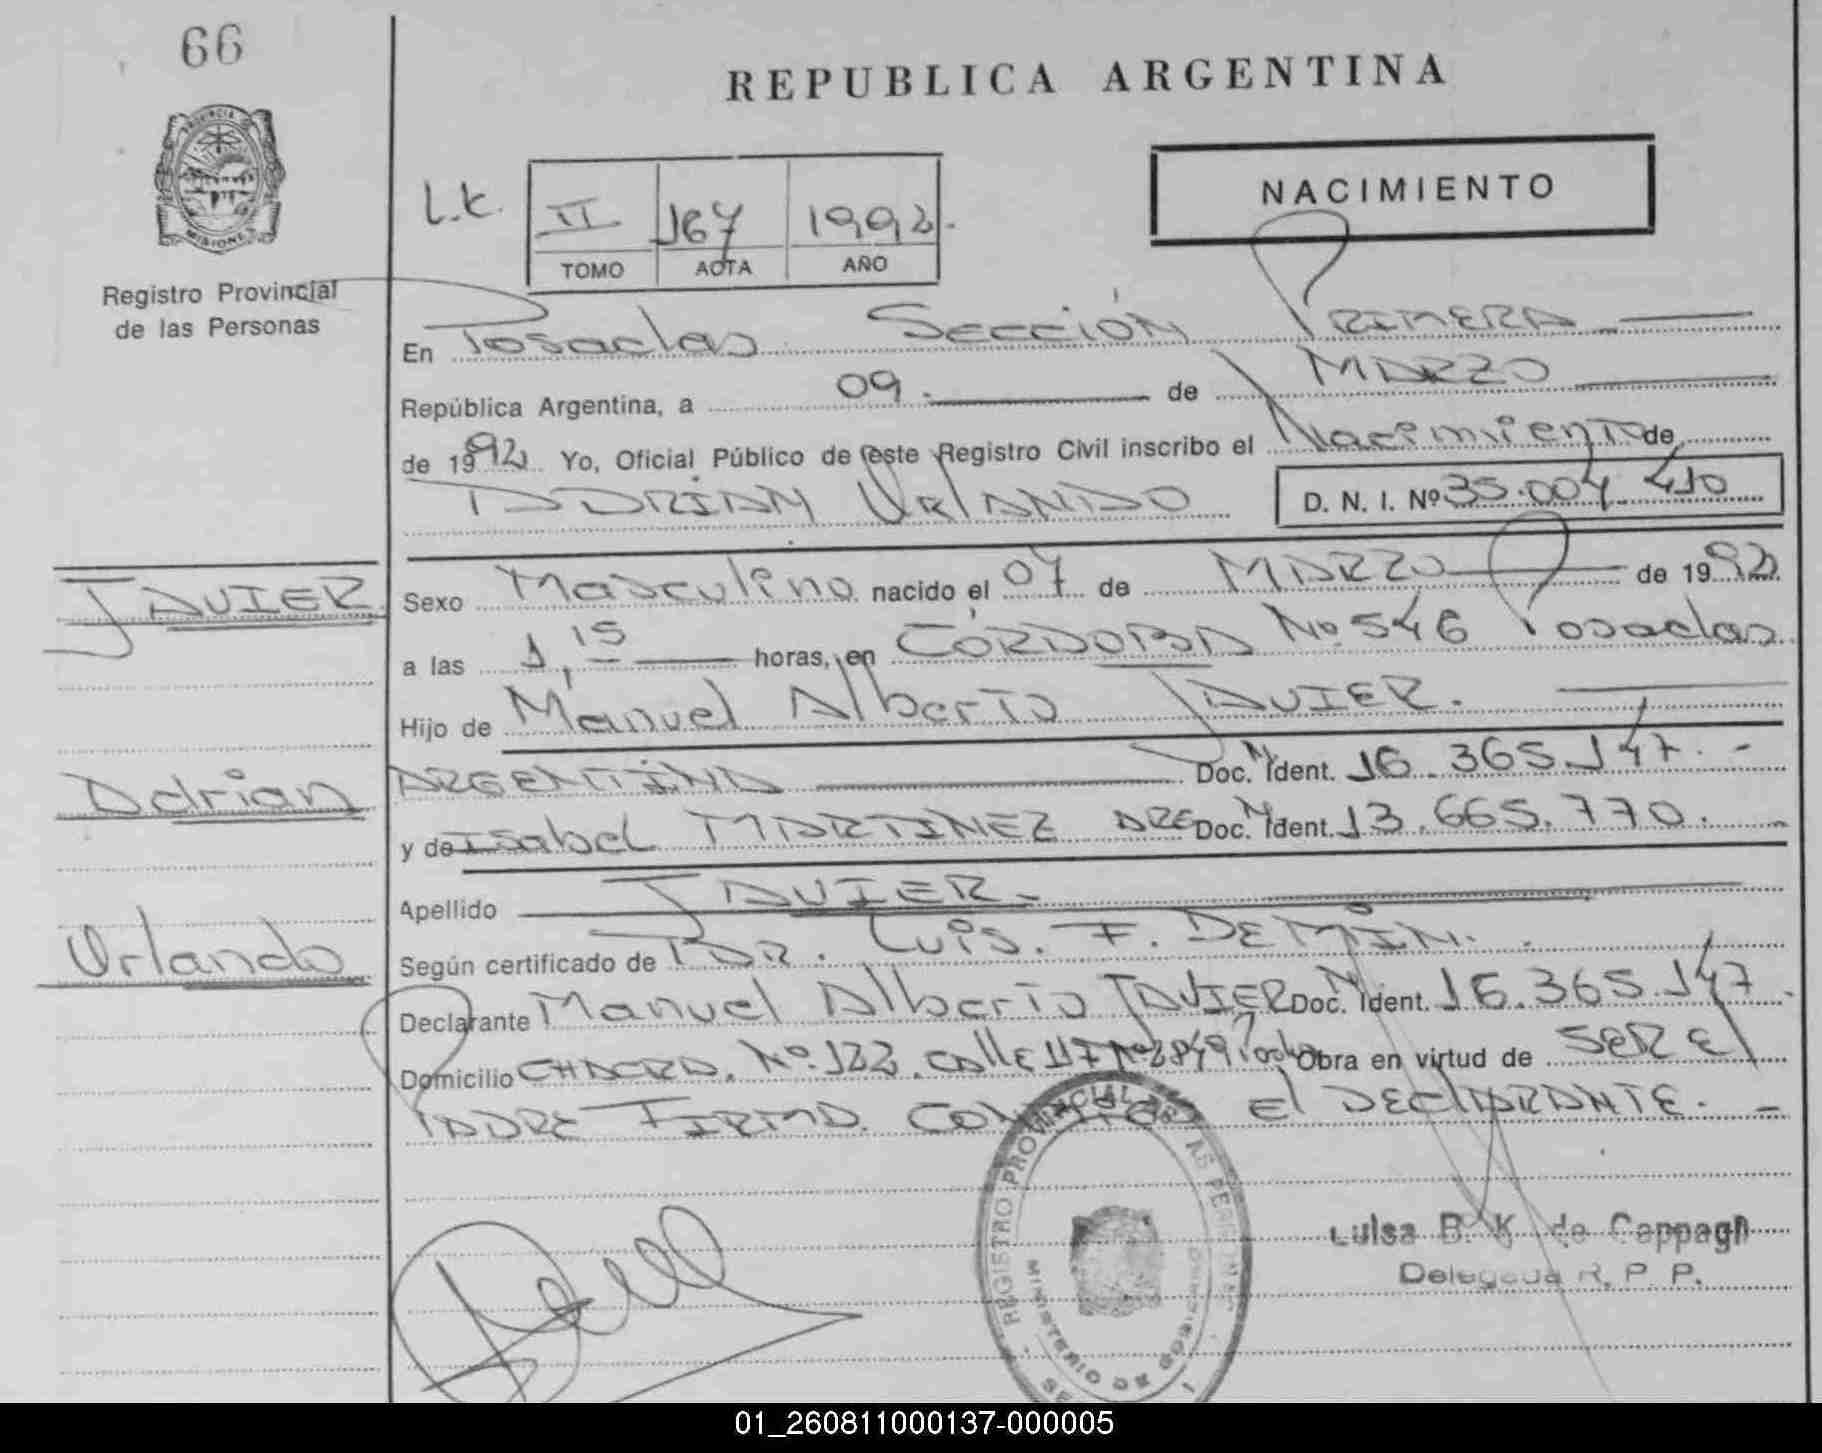 66
REPUBLICA ARGENTINA
PROVINCIA DE
MISIONES
Registro Provincial
de las Personas
NACIMIENTO
L.k. II 167 1992.
TOMO ACTA AÑO
En Posadas Sección PRIMERA
República Argentina, a 09. de MARZO
de 1992 Yo, Oficial Público de este Registro Civil inscribo el Nacimiento de
ADRIAN URLANDO D. N. I. Nº 35.004.410
JAVIER
Sexo Masculino nacido el 07 de MARZO de 1992.
a las 1,15 horas, en CÓRDOBA Nº 546 Posadas
Hijo de Manuel Alberto JAVIER.
Adrian
ARGENTINA Doc. Ident. 16.365.147.-
y de Isabel MARTINEZ ARG Doc. Ident. 13.665.770.-
Apellido JAVIER.-
Urlando
Según certificado de DR. Luis. F. DEMIN.
Declarante Manuel Alberto JAVIER Doc. Ident. 16.365.147.
Domicilio CHACRA. Nº. 122. CALLE 117 Nº 2849 Obra en virtud de SER El
PADRE FIRMA. El DEClARANTE.-
REGISTRO PROVINCIAL DE LAS PERSONAS
MINISTERIO DE GOBIERNO
Luisa B. K. de Cappagli
Delegada R. P. P.
01_260811000137-000005